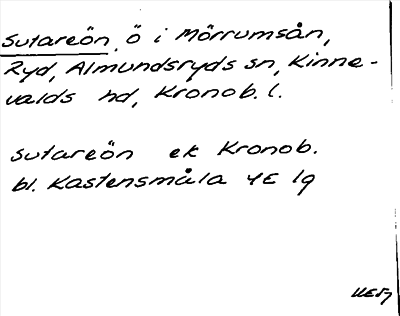 Sutareön, Ö i Mörrumsån,
Ryd, Almundsryds sn, Kinne-
valds hd, Kronob. l.
Sutareön ek Kronob.
bl. Kastensmåla 4E 1g